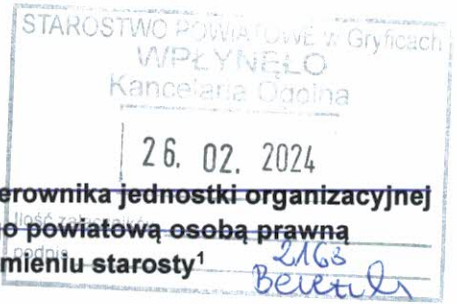 STAROSTWO POWIATOWE w Gryficach
WPŁYNĘŁO
Kancelaria Ogólna
26. 02. 2024
erownika jednostki organizacyjnej
Ilość załączników
o powiatową osobą prawną
podpis
2163
mieniu starosty¹